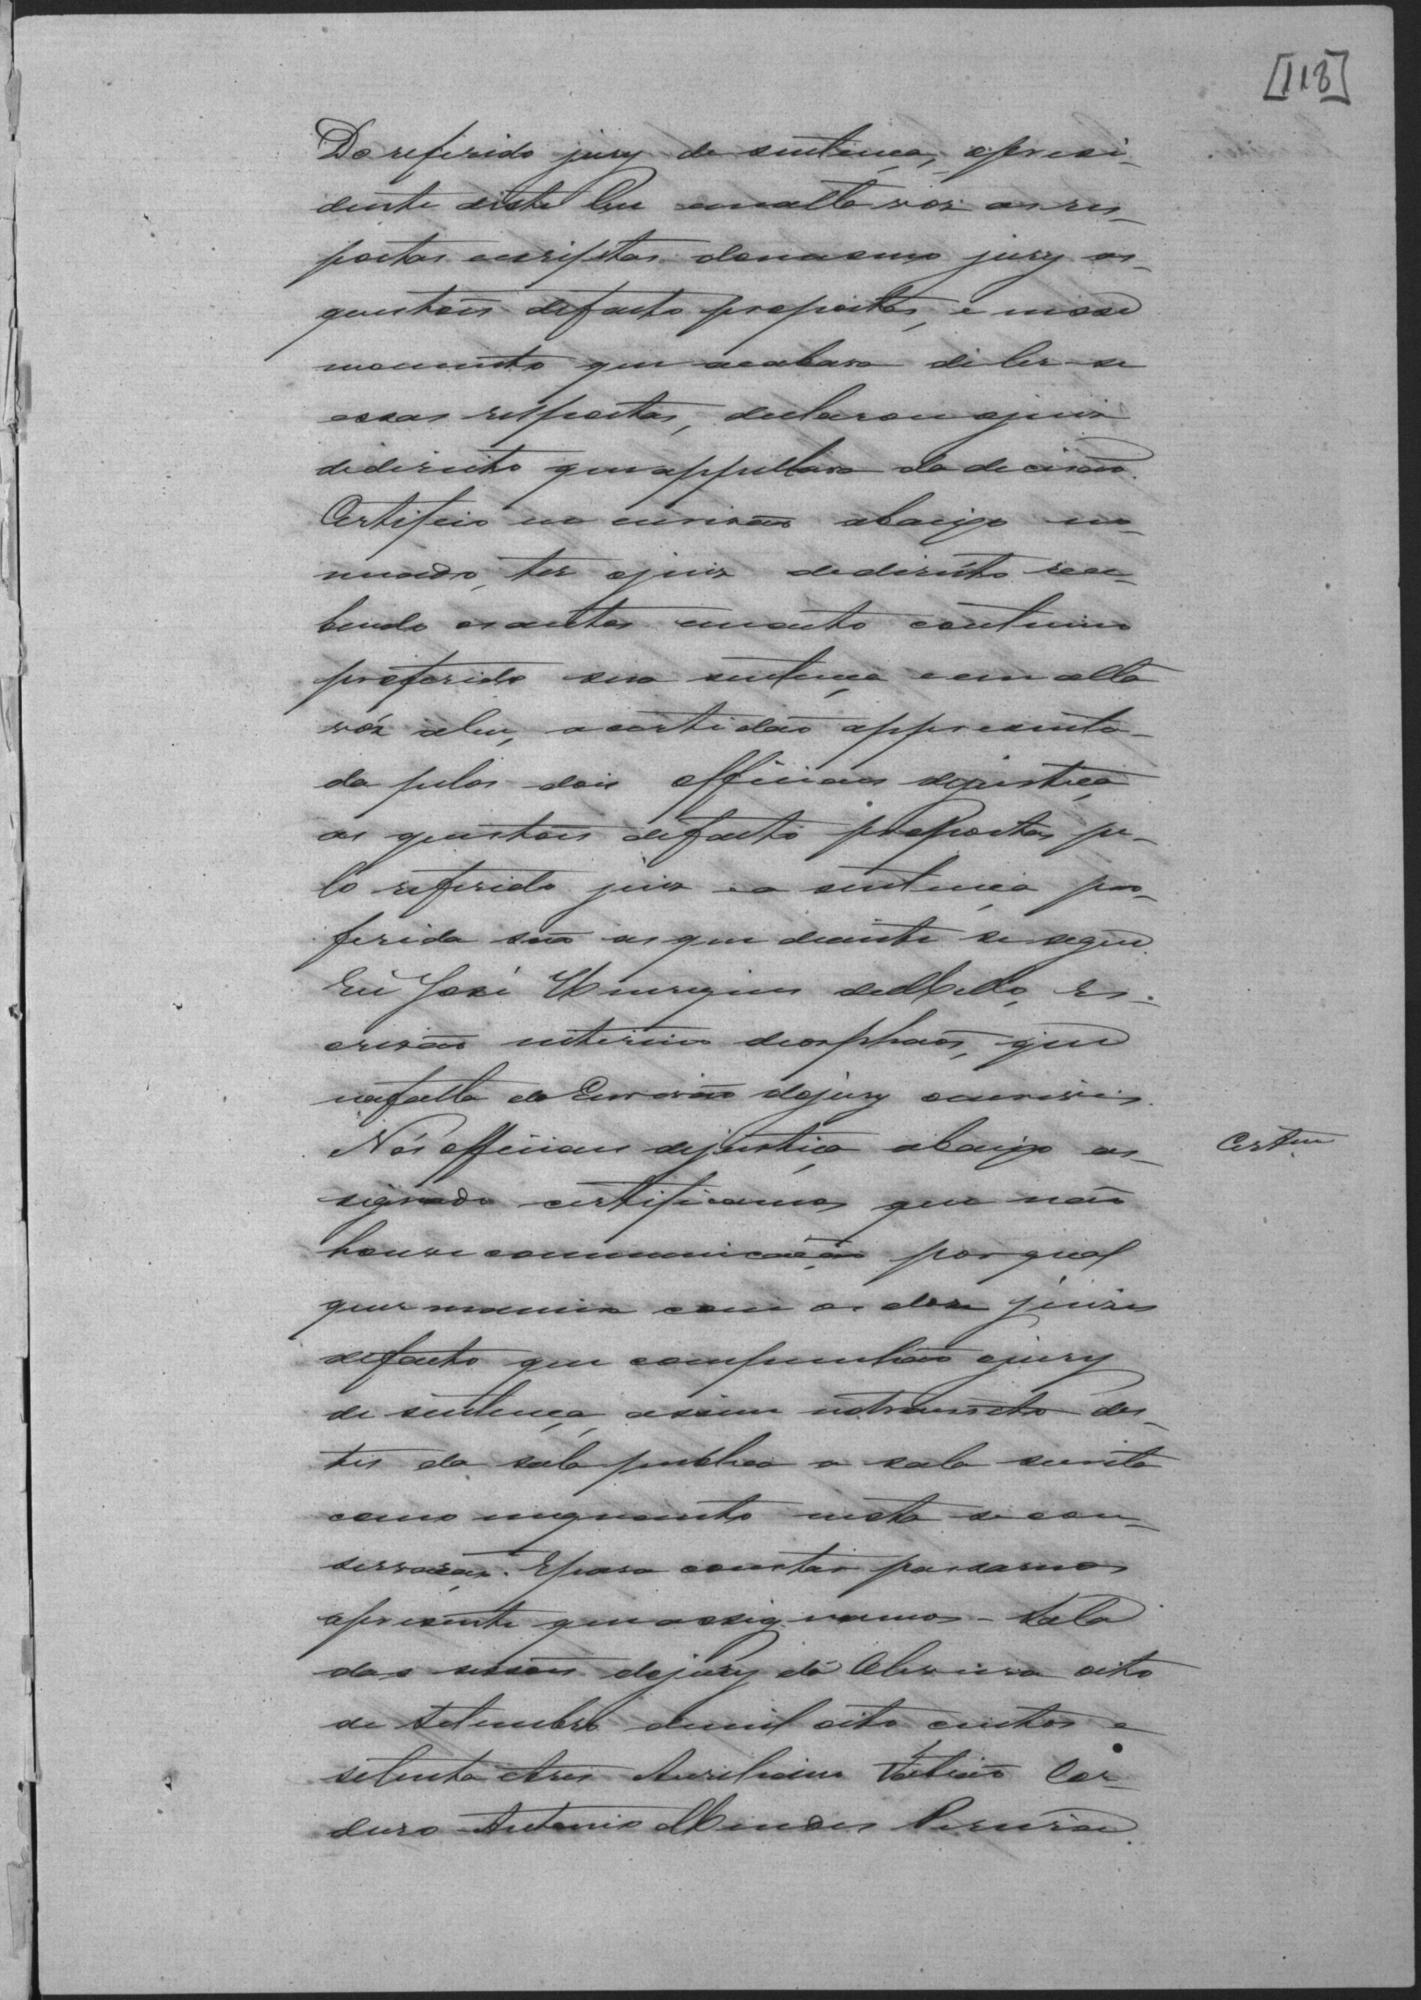 [118]
Do referido jury de sentença, opresi-
dente deste leu em alta vóz as res-
postas escriptas do mesmo jury as
questoẽs defacto propostas, e nesse
momento que acabava de ler-se
essas respostas, declarou ojuiz
dedireito que appellava da decisão.
Certifico eu escrivão abaixo no-
meado, ter ojuiz dedireito rece-
bendo os autos em acto continuo
proferido sua sentença e em alta
vóz a leu, a certidão appresenta-
da pelos dois officiaes dejustiça
as questoẽs defacto propostas pe-
lo referido juiz e a sentença pro-
ferida são as que diante se segue.
Eu José Henriques de Mello, es-
crivão interino de orphaõs, que
na falta do Escrivão do jury o escrivi.
Nós officiaes dejustiça abaixo as-
signado certificamos que não
houve communicação por qual
quer maneira com os doze juizes
defacto que compunhão o jury
de sentença, assim no transito des-
tes da sala publica a sala secreta
como enquanto nesta se con-
servarão. E para constar passamos
apresente que assignamos - Sala
das sessoẽs do jury da Oliveira oito
de Setembro de mil oito centos e
setenta e tres Aureliano Car-
duro Antonio Mendes
Certam